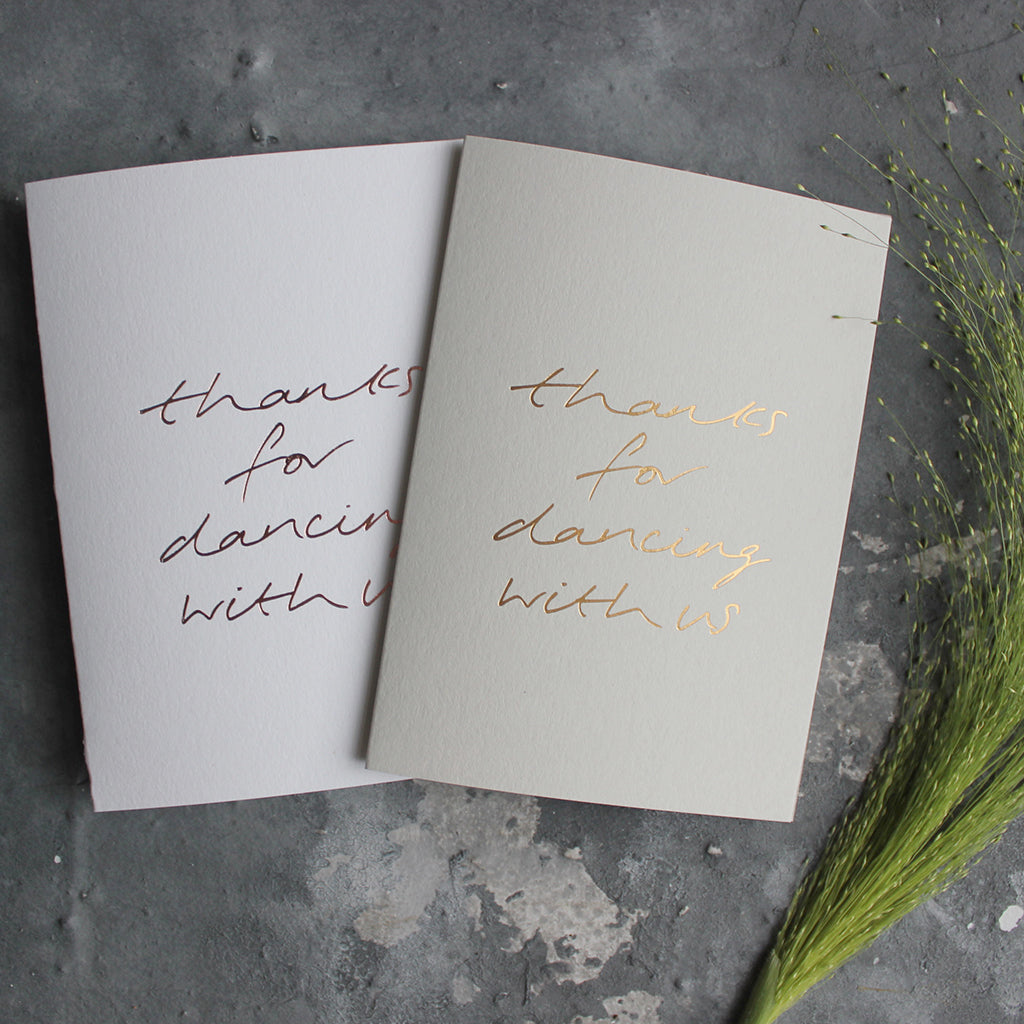 thanks
for
dancin
with u
thanks
for
dancing
with us